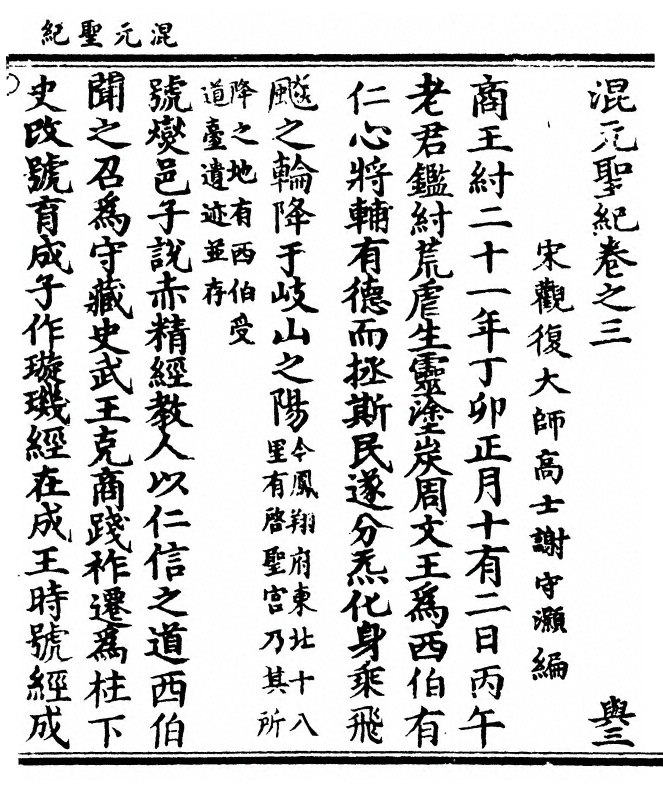 混元聖紀
混元聖紀卷之三
與三
宋觀復大師高士謝守灝編
商王紂二十一年丁卯正月十有二日丙午
老君鑑紂荒虐生靈塗炭周文王爲西伯有
仁心將輔有德而拯斯民遂分炁化身乘飛
飈之輪降于岐山之陽
今鳳翔府東北十八
里有啓聖宮乃其所
降之地有西伯受
道臺遺迹並存
號爕邑子說赤精經教人以仁信之道西伯
聞之召爲守藏史武王克商踐祚遷爲柱下
史改號育成子作璇璣經在成王時號經成